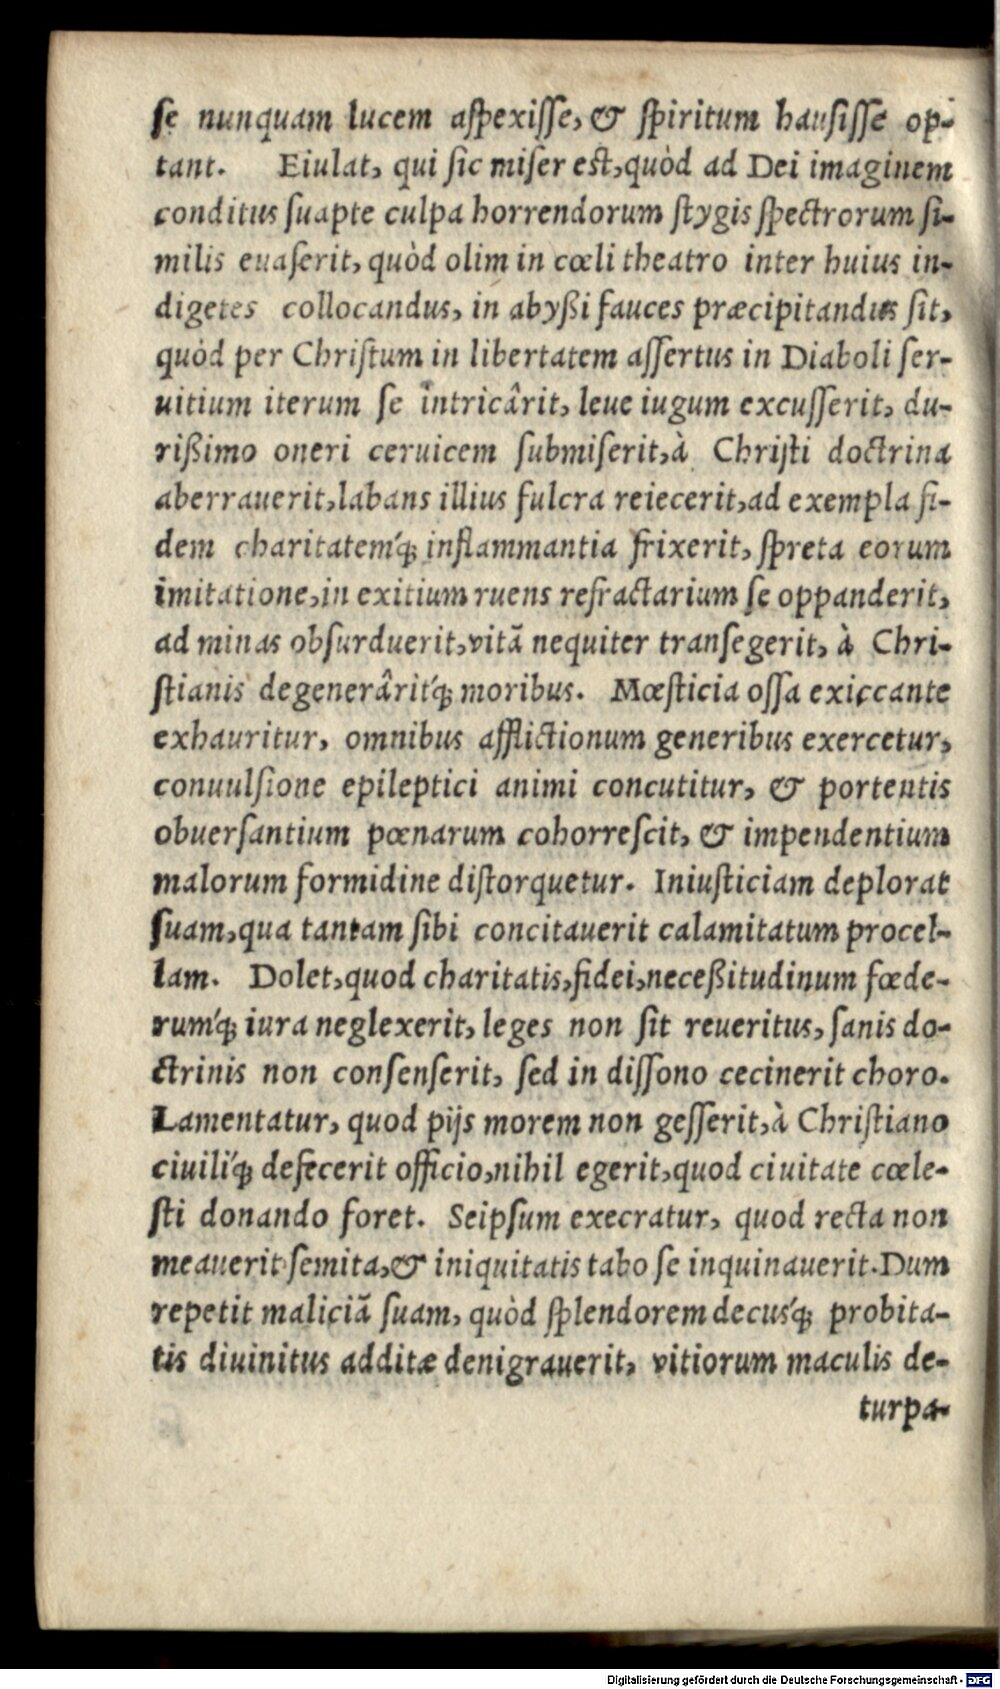 ſe nunquam lucem aſpexiſſe, & ſpiritum hauſiſſe op-
tant. Eiulat, qui ſic miſer eſt, quòd ad Dei imaginem
conditus ſuapte culpa horrendorum ſtygis ſpectrorum ſi-
milis euaſerit, quòd olim in cœli theatro inter huius in-
digetes collocandus, in abyßi fauces præcipitandus ſit,
quòd per Chriſtum in libertatem aſſertus in Diaboli ſer-
uitium iterum ſe intricârit, leue iugum excuſſerit, du-
rißimo oneri ceruicem ſubmiſerit, à Chriſti doctrina
aberrauerit, labans illius fulcra reiecerit, ad exempla fi-
dem charitatemq́; inflammantia frixerit, ſpreta eorum
imitatione, in exitium ruens refractarium ſe oppanderit,
ad minas obſurduerit, vitã nequiter tranſegerit, à Chri-
ſtianis degenerâritq́; moribus. Mœſticia oſſa exiccante
exhauritur, omnibus afflictionum generibus exercetur,
conuulſione epileptici animi concutitur, & portentis
obuerſantium pœnarum cohorreſcit, & impendentium
malorum formidine diſtorquetur. Iniuſticiam deplorat
ſuam, qua tantam ſibi concitauerit calamitatum procel-
lam. Dolet, quod charitatis, fidei, neceßitudinum fœde-
rumq́; iura neglexerit, leges non ſit reueritus, ſanis do-
ctrinis non conſenſerit, ſed in diſſono cecinerit choro.
Lamentatur, quod pijs morem non geſſerit, à Chriſtiano
ciuiliq́; defecerit officio, nihil egerit, quod ciuitate cœle-
ſti donando foret. Seipſum execratur, quod recta non
meauerit ſemita, & iniquitatis tabo ſe inquinauerit. Dum
repetit maliciã ſuam, quòd ſplendorem decusq́; probita-
tis diuinitus additæ denigrauerit, vitiorum maculis de-
turpa-
Digitalisierung gefördert durch die Deutsche Forschungsgemeinschaft - DFG